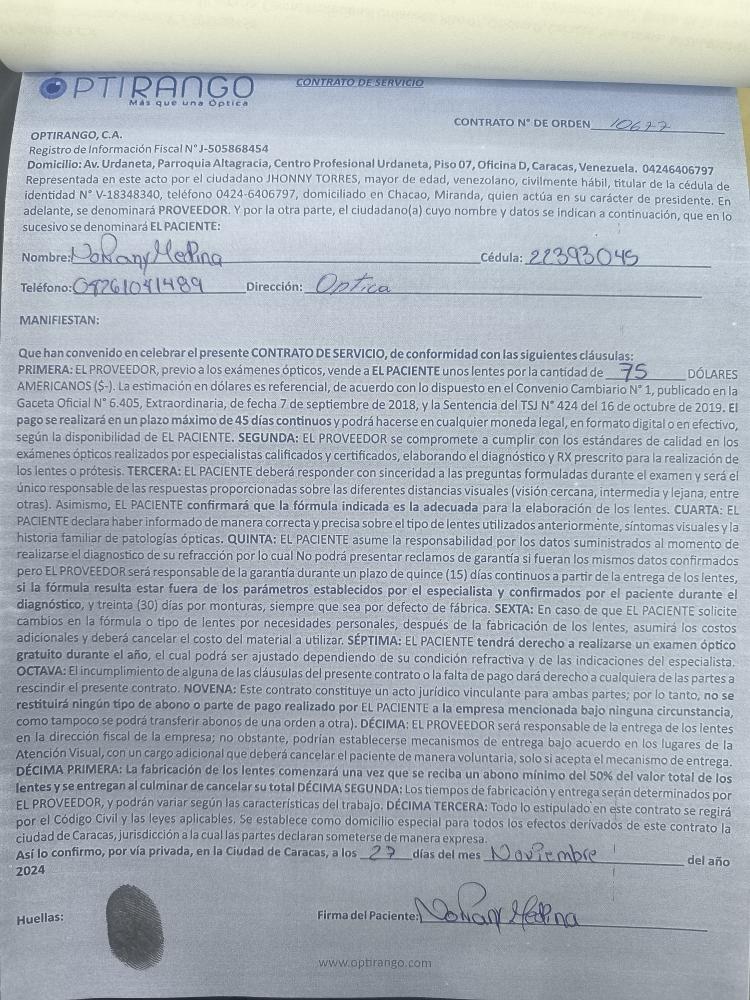 OPTIRANGO
Más que una Óptica
CONTRATO DE SERVICIO
CONTRATO N° DE ORDEN 10677
OPTIRANGO, C.A.
Registro de Información Fiscal N° J-505868454
Domicilio: Av. Urdaneta, Parroquia Altagracia, Centro Profesional Urdaneta, Piso 07, Oficina D, Caracas, Venezuela. 04246406797
Representada en este acto por el ciudadano JHONNY TORRES, mayor de edad, venezolano, civilmente hábil, titular de la cédula de
identidad N° V-18348340, teléfono 0424-6406797, domiciliado en Chacao, Miranda, quien actúa en su carácter de presidente. En
adelante, se denominará PROVEEDOR. Y por la otra parte, el ciudadano(a) cuyo nombre y datos se indican a continuación, que en lo
sucesivo se denominará EL PACIENTE:
Nombre: Nohany Medina Cédula: 22393045
Teléfono: 04261041489 Dirección: Optica
MANIFIESTAN:
Que han convenido en celebrar el presente CONTRATO DE SERVICIO, de conformidad con las siguientes cláusulas:
PRIMERA: EL PROVEEDOR, previo a los exámenes ópticos, vende a EL PACIENTE unos lentes por la cantidad de 75 DÓLARES
AMERICANOS ($-). La estimación en dólares es referencial, de acuerdo con lo dispuesto en el Convenio Cambiario N° 1, publicado en la
Gaceta Oficial N° 6.405, Extraordinaria, de fecha 7 de septiembre de 2018, y la Sentencia del TSJ N° 424 del 16 de octubre de 2019. El
pago se realizará en un plazo máximo de 45 días continuos y podrá hacerse en cualquier moneda legal, en formato digital o en efectivo,
según la disponibilidad de EL PACIENTE. SEGUNDA: EL PROVEEDOR se compromete a cumplir con los estándares de calidad en los
exámenes ópticos realizados por especialistas calificados y certificados, elaborando el diagnóstico y RX prescrito para la realización de
los lentes o prótesis. TERCERA: EL PACIENTE deberá responder con sinceridad a las preguntas formuladas durante el examen y será el
único responsable de las respuestas proporcionadas sobre las diferentes distancias visuales (visión cercana, intermedia y lejana, entre
otras). Asimismo, EL PACIENTE confirmará que la fórmula indicada es la adecuada para la elaboración de los lentes. CUARTA: EL
PACIENTE declara haber informado de manera correcta y precisa sobre el tipo de lentes utilizados anteriormente, síntomas visuales y la
historia familiar de patologías ópticas. QUINTA: EL PACIENTE asume la responsabilidad por los datos suministrados al momento de
realizarse el diagnostico de su refracción por lo cual No podrá presentar reclamos de garantía si fueran los mismos datos confirmados
pero EL PROVEEDOR será responsable de la garantía durante un plazo de quince (15) días continuos a partir de la entrega de los lentes,
si la fórmula resulta estar fuera de los parámetros establecidos por el especialista y confirmados por el paciente durante el
diagnóstico, y treinta (30) días por monturas, siempre que sea por defecto de fábrica. SEXTA: En caso de que EL PACIENTE solicite
cambios en la fórmula o tipo de lentes por necesidades personales, después de la fabricación de los lentes, asumirá los costos
adicionales y deberá cancelar el costo del material a utilizar. SÉPTIMA: EL PACIENTE tendrá derecho a realizarse un examen óptico
gratuito durante el año, el cual podrá ser ajustado dependiendo de su condición refractiva y de las indicaciones del especialista.
OCTAVA: El incumplimiento de alguna de las cláusulas del presente contrato o la falta de pago dará derecho a cualquiera de las partes a
rescindir el presente contrato. NOVENA: Este contrato constituye un acto jurídico vinculante para ambas partes; por lo tanto, no se
restituirá ningún tipo de abono o parte de pago realizado por EL PACIENTE a la empresa mencionada bajo ninguna circunstancia,
como tampoco se podrá transferir abonos de una orden a otra). DÉCIMA: EL PROVEEDOR será responsable de la entrega de los lentes
en la dirección fiscal de la empresa; no obstante, podrían establecerse mecanismos de entrega bajo acuerdo en los lugares de la
Atención Visual, con un cargo adicional que deberá cancelar el paciente de manera voluntaria, solo si acepta el mecanismo de entrega.
DÉCIMA PRIMERA: La fabricación de los lentes comenzará una vez que se reciba un abono mínimo del 50% del valor total de los
lentes y se entregan al culminar de cancelar su total DÉCIMA SEGUNDA: Los tiempos de fabricación y entrega serán determinados por
EL PROVEEDOR, y podrán variar según las características del trabajo. DÉCIMA TERCERA: Todo lo estipulado en este contrato se regirá
por el Código Civil y las leyes aplicables. Se establece como domicilio especial para todos los efectos derivados de este contrato la
ciudad de Caracas, jurisdicción a la cual las partes declaran someterse de manera expresa.
Así lo confirmo, por vía privada, en la Ciudad de Caracas, a los 27 días del mes Noviembre del año
2024
Huellas:
Firma del Paciente: Nohany Medina
www.optirango.com